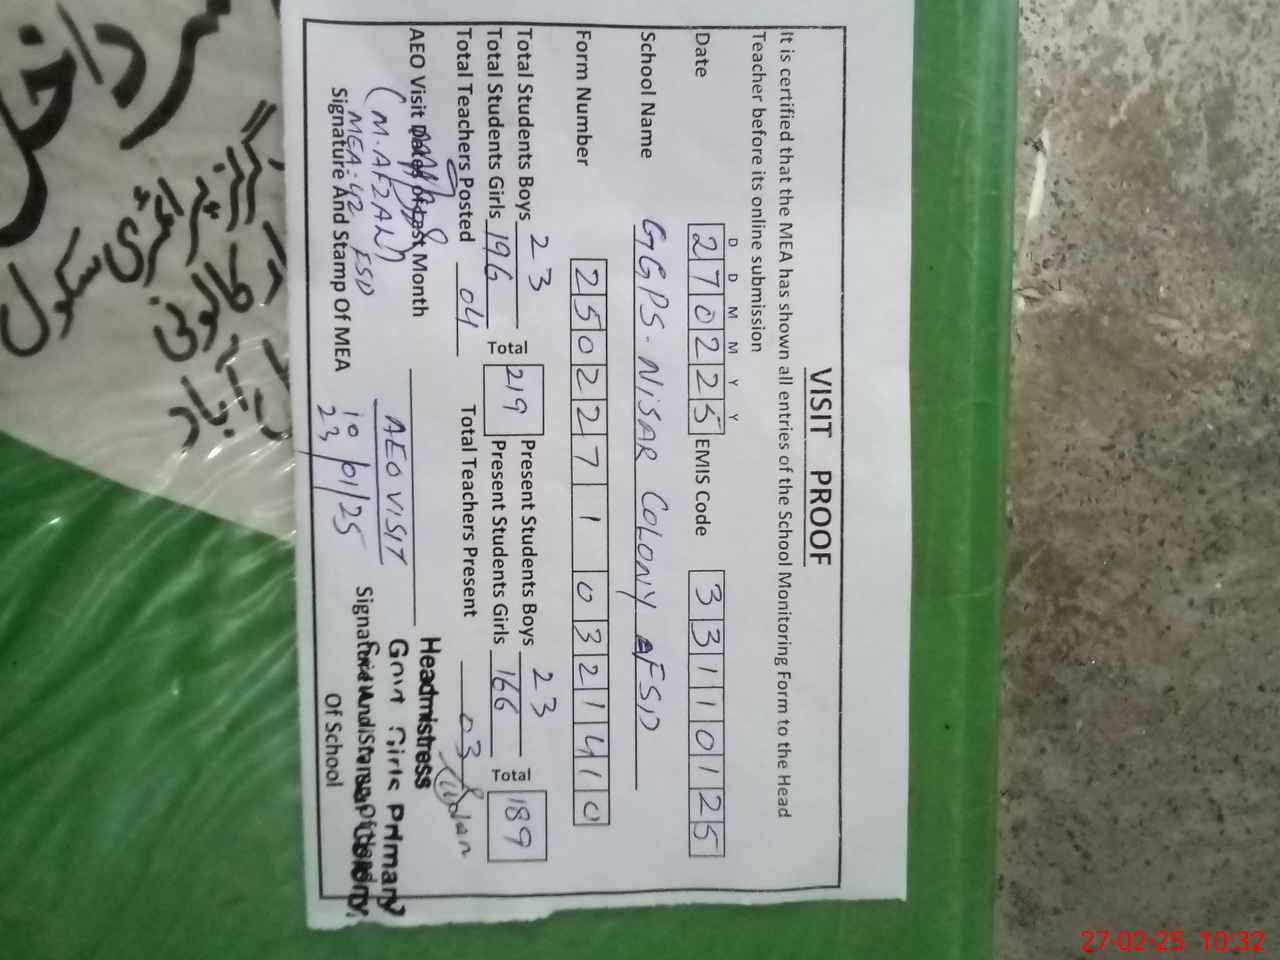 VISIT PROOF
It is certified that the MEA has shown all entries of the School Monitoring Form to the Head
Teacher before its online submission
D D M M Y Y
Date 270225 EMIS Code 33110125
School Name GGPS. NISAR COLONY FSD
Form Number 2502271 0321410
Total Students Boys 23 Total 219 Present Students Boys 23 Total 189
Total Students Girls 196 Present Students Girls 166
Total Teachers Posted 04 Total Teachers Present 03
AEO Visit Dates of Last Month
AEO VISIT
10/01/25
23
(M. AFZAN)
MEA:42 FSD
Signature And Stamp Of MEA
Headmistress
Govt Girls Primary
Signature And Stamp Of Head
Of School
گرلز پرائمری سکول
کالونی
آباد
27-02-25 10:32